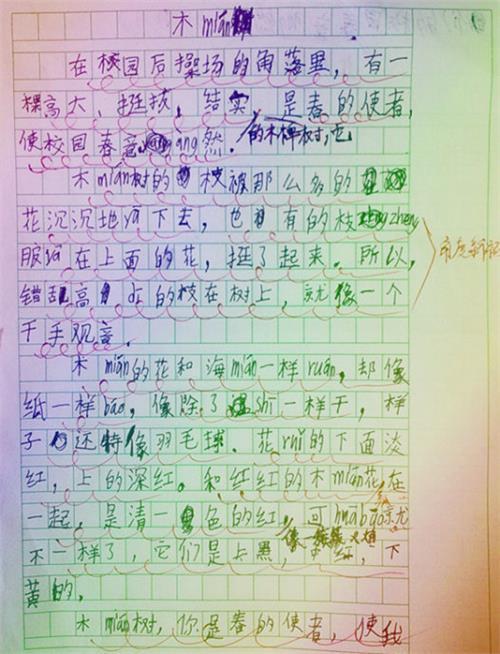 木mián
在校园后操场的角落里，有一
棵高大、挺拔，结实，的木棉树，它是春的使者，
使校园春意àng然。
木mián树的枝被那么多的
花沉沉地yā下去，也有的枝zhēng
服yā在上面的花，挺了起来。所以，
错乱高的枝在树上，就像一个
千手观音。
木mián的花和海mián一样ruǎn，却像
纸一样báo，像除了shī一样干，样
子还特像羽毛球。花ruǐ的下面淡
红，上的深红。和红红的木mián花在
一起，是清一色的红，可huābāo就
不一样了，它们是上黑，中红，下
黄的，像一簇簇火焰
木mián树，你是春的使者，使我